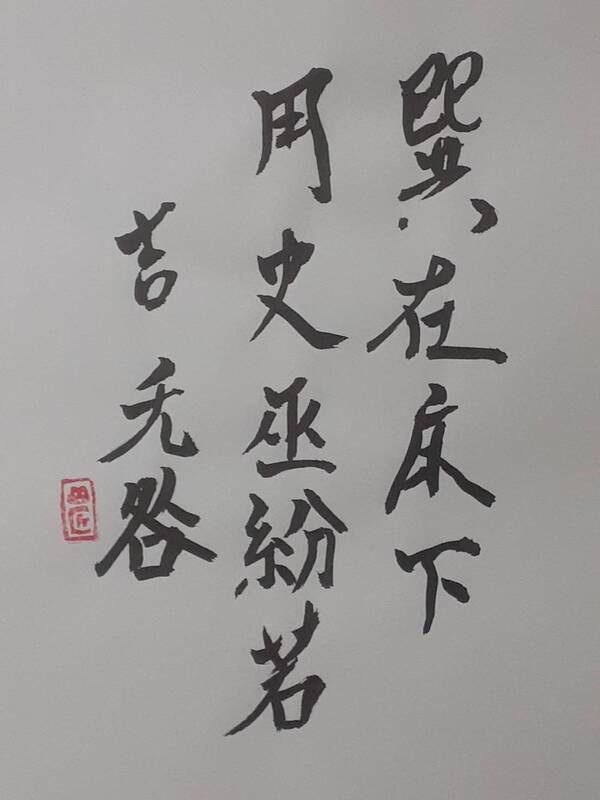 巽在床下
用史巫紛若
吉无咎